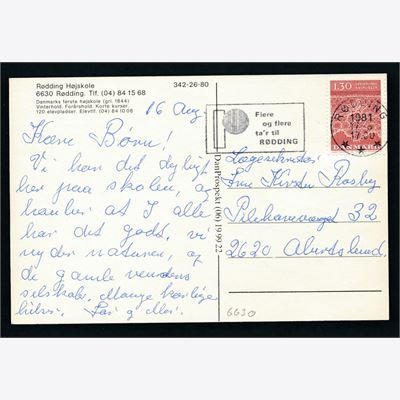 Rødding Højskole
6630 Rødding. Tlf. (04) 84 15 68
Danmarks første højskole (grl. 1844)
Vinterhold. Forårshold. Korte kurser.
120 elevpladser. Elevtlf. (04) 84 10 08
342-26-80
16 Aug.
Kære Børn!
Vi har det dejligt
her paa skolen, og
haaber at I alle
har det godt, vi
nyder naturen, og
de gamle venners
selskab. Mange kærlige
hilsner.
DanProspekt (06) 19 99 22
Flere
og flere
ta'r til
RØDDING
RØDDING
1981
17.00
DANMARK
130
Lægesekretær
Fru Kirsten
32
2620 Albertslund.
6630